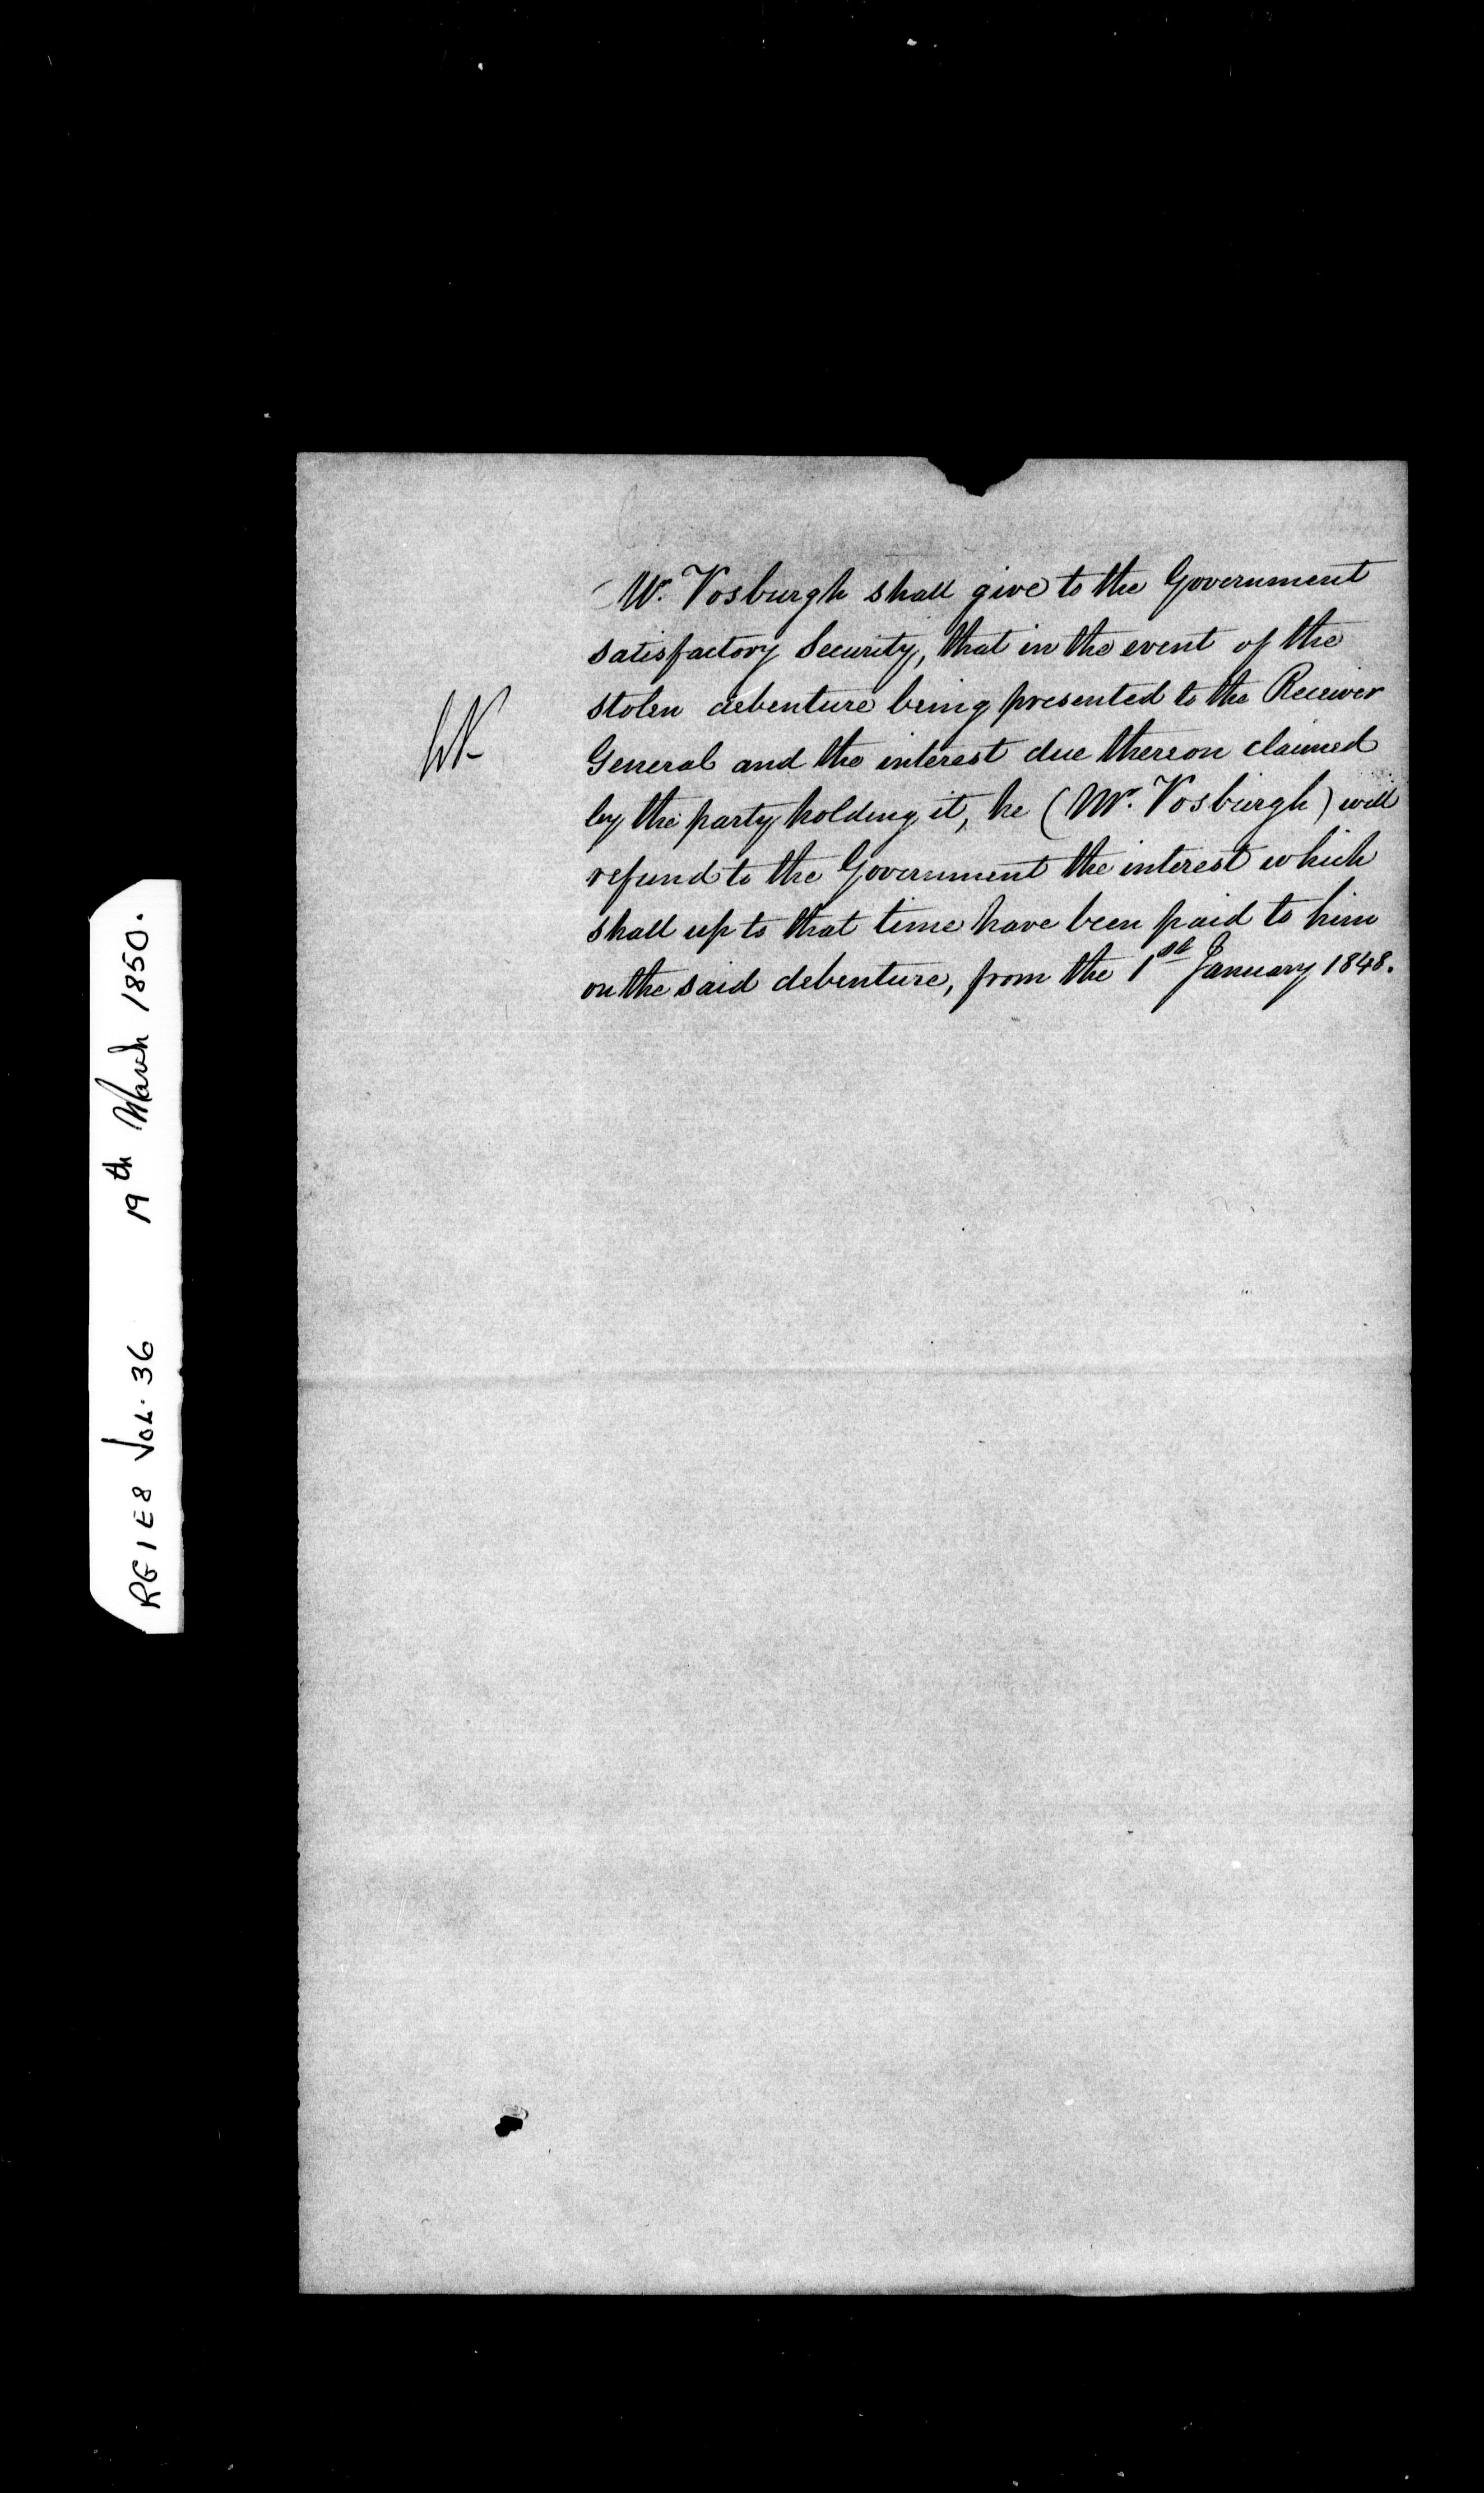 Mr. Vosburgh shall give to the Government
satisfactory Security, that in the event of the
stolen debenture being presented to the Receiver
General and the interest due thereon claimed
by the party holding it, he (Mr. Vosburgh) will
refund to the Government the interest which
shall up to that time have been paid to him
on the said debenture, from the 1st January 1848.
RG1E8 Vol. 36 19th March 1850.